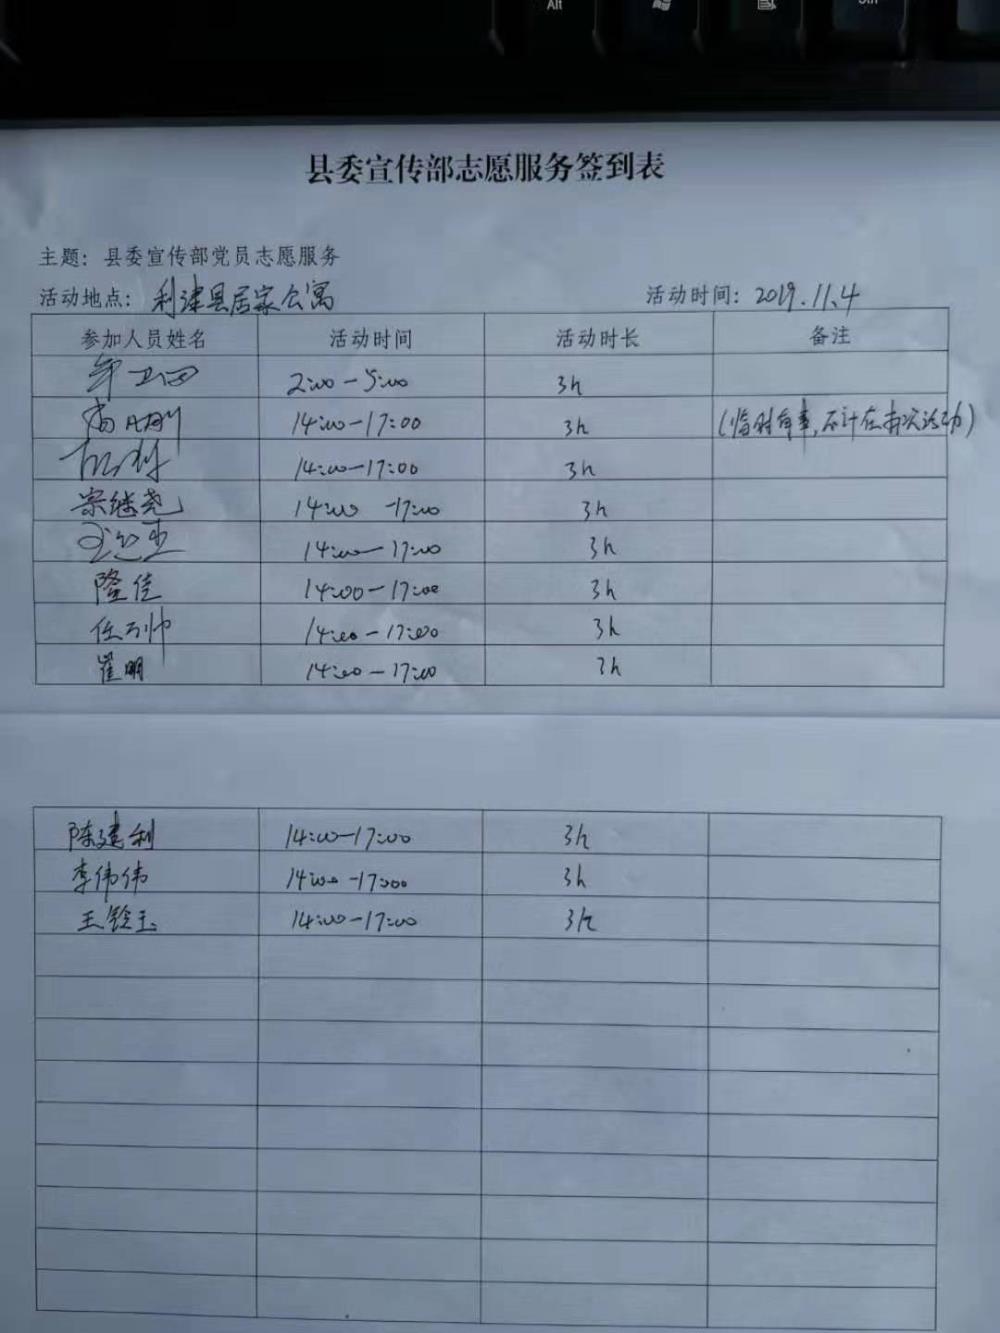 Alt
县委宣传部志愿服务签到表
主题：县委宣传部党员志愿服务
活动地点：利津县居家公寓 活动时间：2019.11.4
参加人员姓名 活动时间 活动时长 备注
2:00－5:00 3h
14:00－17:00 3h (临时有事,不计在本次活动)
14:00－17:00 3h
宗继尧 14:00 －17:00 3h
14:00－17:00 3h
隆佳 14:00－17:00 3h
14:00－17:00 3h
崔明 14:00－17:00 3h
陈建利 14:00－17:00 3h
李伟伟 14:00－17:00 3h
王铨玉 14:00－17:00 3h